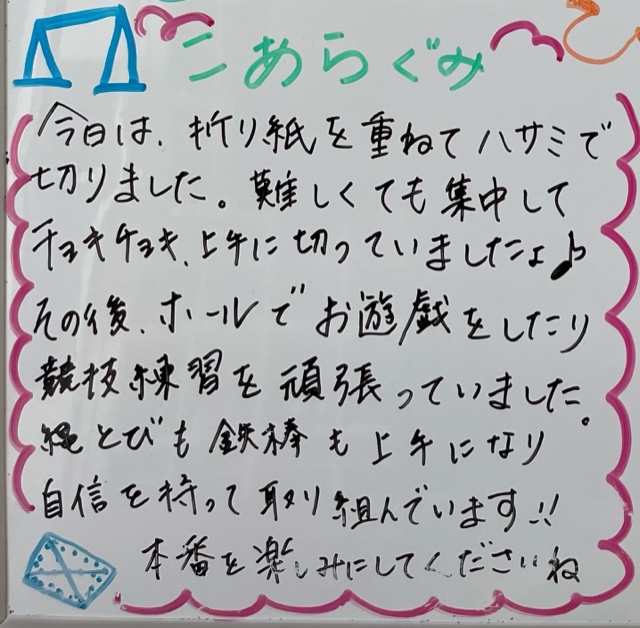 こあらぐみ
今日は、折り紙を重ねてハサミで
切りました。難しくても集中して
チョキチョキ、上午に切っていましたよ♪
その後、ホールでお遊戯をしたり
競技練習を頑張っていました。
縄とびも鉄棒も上午になり
自信を持って取り組んでいます!!
本番を楽しみにしてくださいね